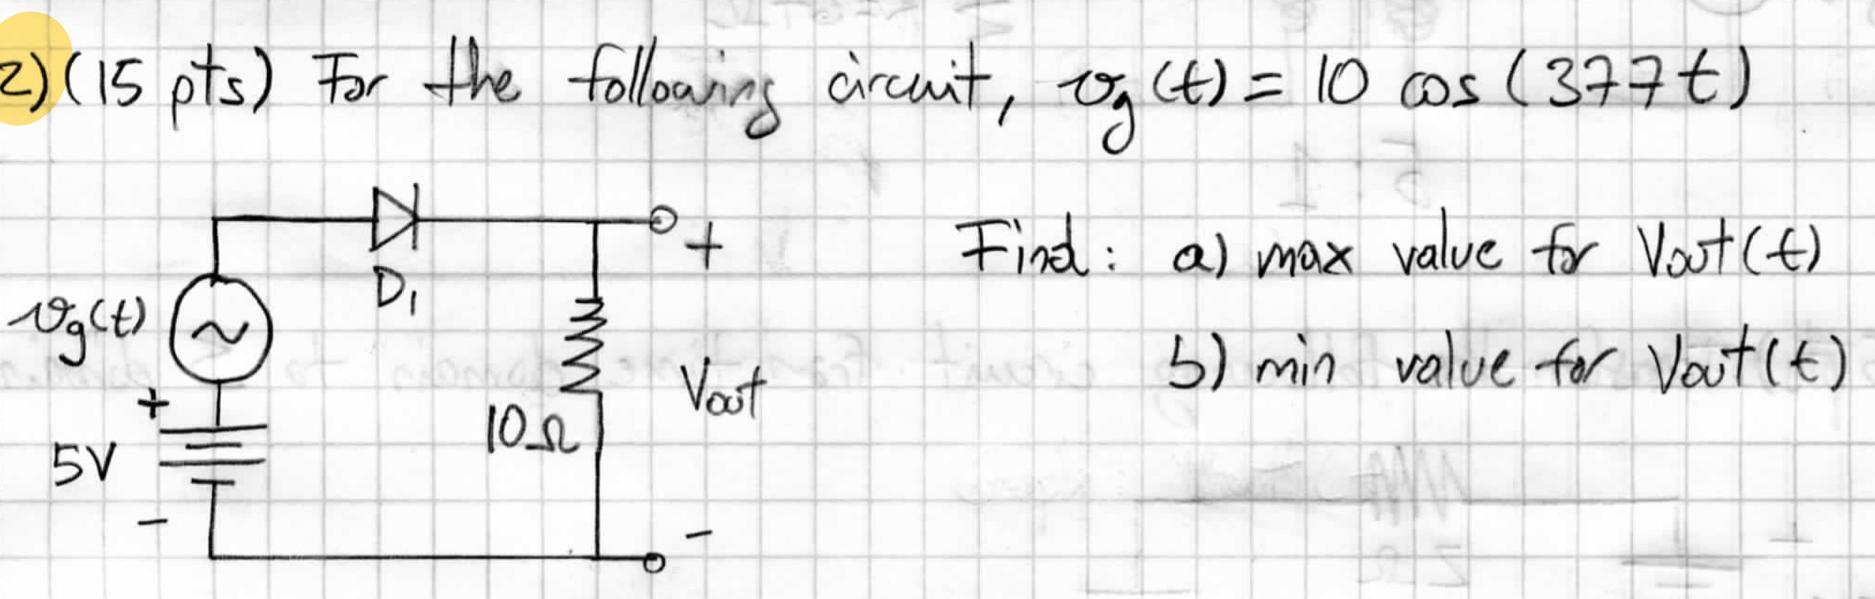 2) (15 pts) For the following circuit, vg(t) = 10 cos (377t)
Find: a) max value for Vout(t)
b) min value for Vout(t)
D1
vg(t)
+
-
10Ω
Vout
+
5V
-